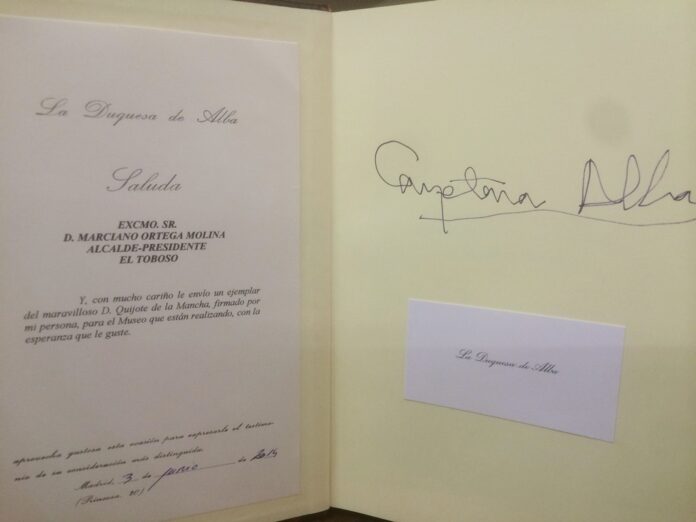 La Duquesa de Alba
Saluda
EXCMO. SR.
D. MARCIANO ORTEGA MOLINA
ALCALDE-PRESIDENTE
EL TOBOSO
Y, con mucho cariño le envío un ejemplar
del maravilloso D. Quijote de la Mancha, firmado por
mi persona, para el Museo que están realizando, con la
esperanza que le guste.
aprovecha gustosa esta ocasión para expresarle el testimo-
nio de su consideración más distinguida.
Madrid, 3 de junio de 2014
(Princesa, 20)
Cayetana Alba
La Duquesa de Alba